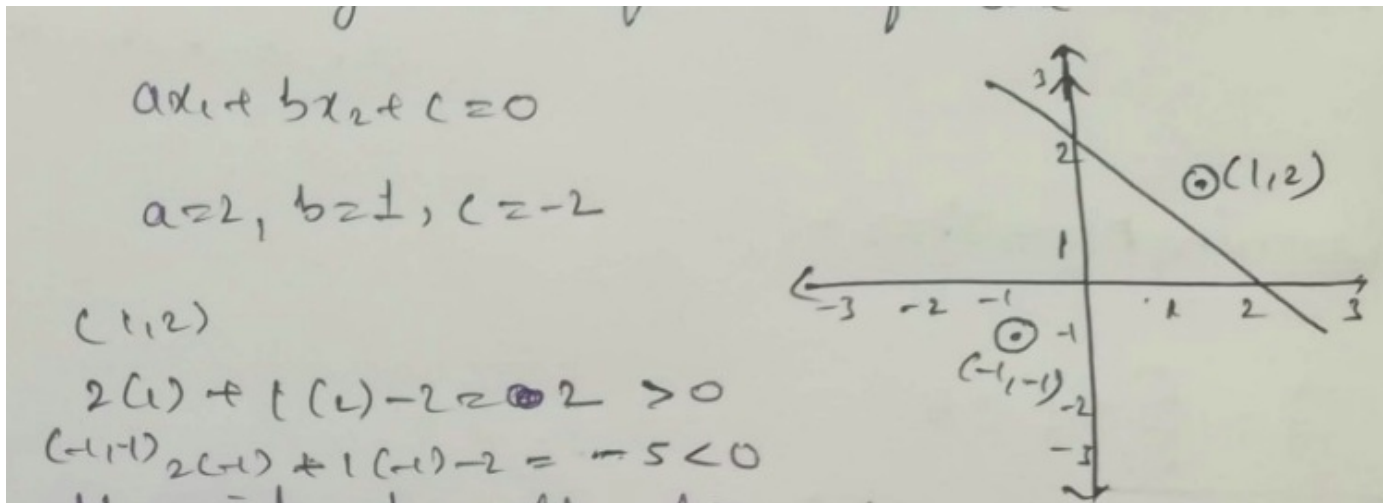 ax₁ + bx₂ + c = 0
a=2, b=1, c=-2
(1,2)
2(1) + 1(2)-2 = 2 > 0
(-1,-1) 2(-1) + 1(-1)-2 = -5 < 0
3
2
(1,2)
1
-3 -2 -1 1 2 3
-1
(-1,-1)
-2
-3